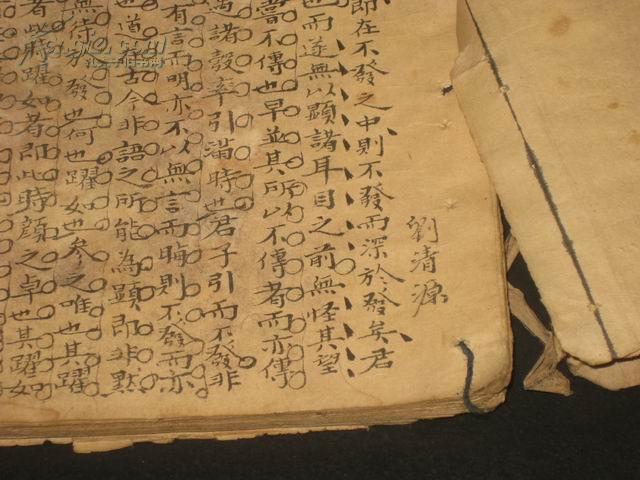 劉清源
即在不發之中則不發而深於發矣君
也而遂無以顯諸耳目之前無怪其望
嘗不傳也早並其所以不傳者而亦傳
諸彀率引滿時也君子引而不發非
有言而明亦不以無言而晦則不發而亦
也道在古今非語之所能為顯即非默
無待於發也何也躍如也參之唯也其躍
者此時躍如者即此時顏之卓也其躍如